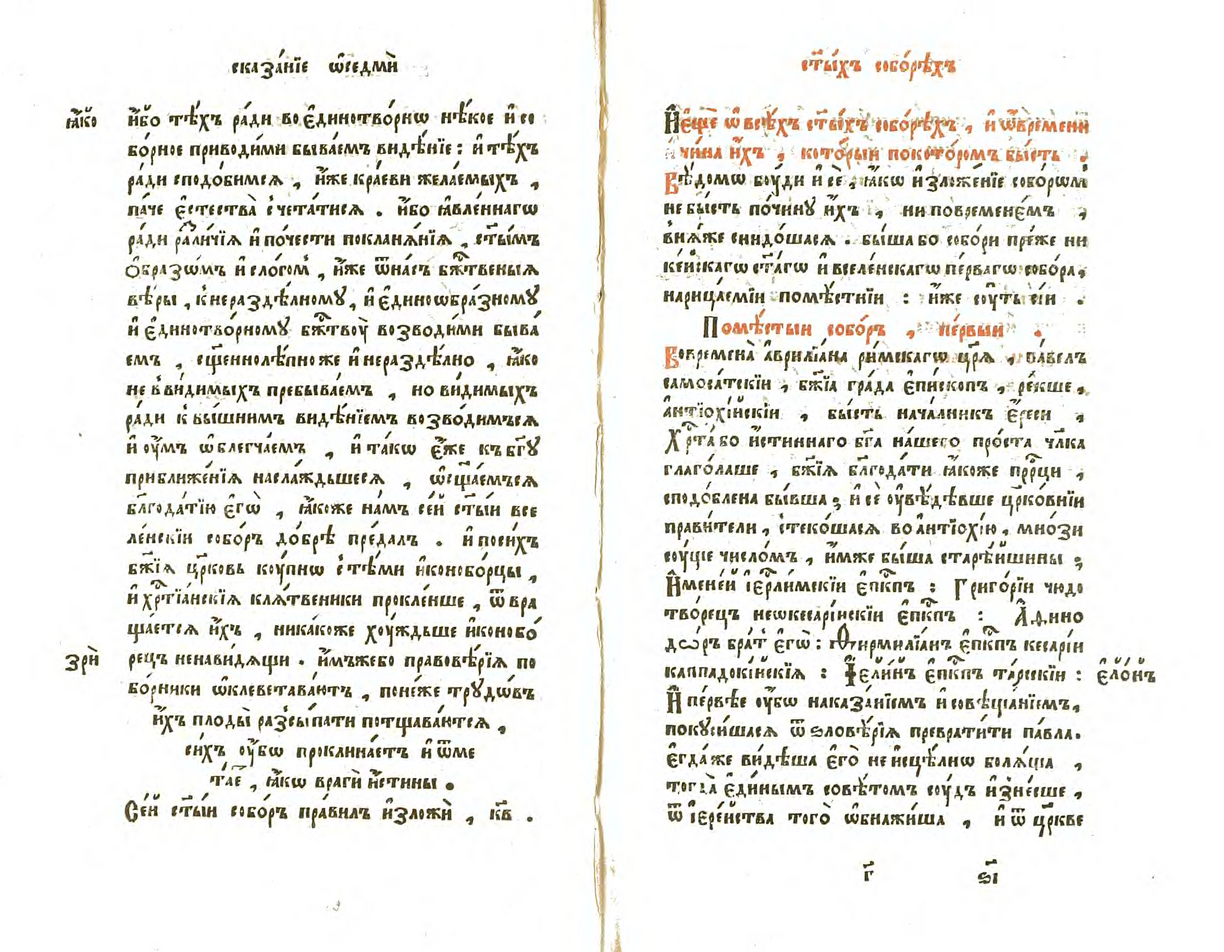 сказа́нїе ѡ҆седмѝ
ꙗ҆́кѡ
и҆́бо тѣ́хъ ра́ди во є҆динотво́рнѡ нѣ́кое и҆ со
бо́рное приводи́ми быва́емъ видѣ́нїе : и҆ тѣ́хъ
ра́ди сподо́бимсѧ , и҆́же кра́еви жела́емыхъ ,
па́че є҆стества̀ счета́тисѧ . и҆́бо ꙗ҆вле́ннагѡ
ра́ди ра́зли́чїѧ и҆ по́чести покланѧ́нїѧ , ст҃ы́мъ
ѻ҆́бразѡмъ и҆ сло́гом , и҆́же ѿна́съ бж҃твеныѧ
вѣ́ры , к нераздѣ́лному , и҆ є҆диноѡбра́зному
и҆ є҆динотво́рному бж҃твꙋ̀ возводи́ми быва́
емъ , сщ҃еннолѣ́пно же и҆ нераздѣ́лно , ꙗ҆́ко
не в ви́димыхъ пребыва́емъ , но ви́димыхъ
ра́ди к вы́шнимъ видѣ́нїемъ возво́димъсѧ
и҆ ᲂу҆мъ ѡ҆блегча́емъ , и҆ та́кѡ є҆́же къ бг҃ꙋ
приближе́нїѧ наслажды́шесѧ , ѡ҆сщ҃а́емъсѧ
блг҃ода́тїю є҆гѡ̀ , ꙗ҆́коже на́мъ се́й ст҃ы́и все
ле́нскїи собо́ръ до́брѣ пре́далъ . и҆ поси́хъ
бж҃їѧ цр҃ковь кꙋ́пнѡ с тѣ́ми и҆конобо́рцы ,
и҆ хрⷭ҇тїа́нскїѧ клѧ́твеники прокле́нше , ѿвра
ща́етсѧ и҆́хъ , ника́коже хꙋ́ждьше и҆конобо́
зрѝ
рецъ ненави́дѧщи . и҆́мъже бо правовѣ́рїѧ по
бо́рники ѡ҆клевета́ваютъ , поне́же трꙋдѡ́въ
и҆́хъ плоды̀ разсыпа́ти потщава́ютсѧ ,
си́хъ ᲂу҆́бѡ проклина́етъ и҆ ѿме
та́е , ꙗ҆́кѡ врагѝ и҆́стины .
Се́й ст҃ы́и собо́ръ пра́вилъ и҆зложѝ , к҃в .
ст҃ы́хъ собо́рѣхъ
И҆ є҆щѐ ѡ всѣ́хъ ст҃ы́хъ собо́рѣхъ , и҆ ѡ҆ времени
и҆ чи́на и҆́хъ , кото́рыи по кото́ромъ бы́сть .
Вѣ́домѡ бꙋ́ди и҆ сѐ , ꙗ҆́кѡ и҆зложе́нїе собо́рѡмъ
не бы́сть по чи́нꙋ и҆́хъ , ни повремене́мъ ,
внѧ́же снидо́шасѧ . бы́ша бо собо́ри пре́же ни
ке́йскагѡ ст҃а́гѡ и҆ вселе́нскагѡ пе́рвагѡ собо́ра ,
нарица́емїи помѣ́стнїи : и҆́же сꙋ́ть сїѝ .
Помѣ́стыи собо́ръ , пе́рвыи .
Во времена̀ а҆врилїа́на ри́мскагѡ цр҃ѧ̀ , па́велъ
самоса́тскїи , бж҃їа гра́да є҆пи́скопъ , ре́кше ,
а҆нтїохі́йскїи , бы́сть нача́лникъ є҆́реси ,
Хрⷭ҇та́ бо и҆́стиннаго бг҃а на́шего про́ста чл҃ка
глаго́лаше , бж҃їѧ блг҃ода́ти ꙗ҆́коже прⷪ҇ро́цы ,
сподо́блена бы́вша ; и҆ сѐ ᲂу҆вѣ́дѣвше цр҃ко́внїи
прави́тели , стеко́шасѧ во а҆нтїо́хїю , мно́зи
сꙋ́ще число́мъ , и҆́мже бы́ша старѣ́йшины ;
И҆мене́й і҆ер҇ли́мскїи є҆п҇кпъ : Григо́рїи чюдо
тво́рецъ неѡкеса́рїискїи є҆п҇кпъ : А҆фи́но
до́ръ бра́т є҆гѡ̀ : Ѳирмилїа́нъ є҆п҇кпъ кеса́рїи
каппадокі́йскїѧ : І҆е́линъ є҆п҇кпъ та́рсскїи :
є҆ле́нъ
И҆ пе́рвѣе ᲂу҆́бѡ наказа́нїемъ и҆ совѣща́нїемъ ,
покꙋси́шасѧ ѿ ѕловѣ́рїѧ преврати́ти па́вла .
Є҆гда́ же ви́дѣша є҆го̀ неисцѣ́лнѡ болѧ́ща ,
тогда̀ є҆ди́нымъ совѣ́томъ сꙋ́дъ и҆зне́сше ,
ѿ і҆ере́йства того̀ ѡ҆бнажи́ша , и҆ ѿ цр҃кве
г҃ ѕ҃і